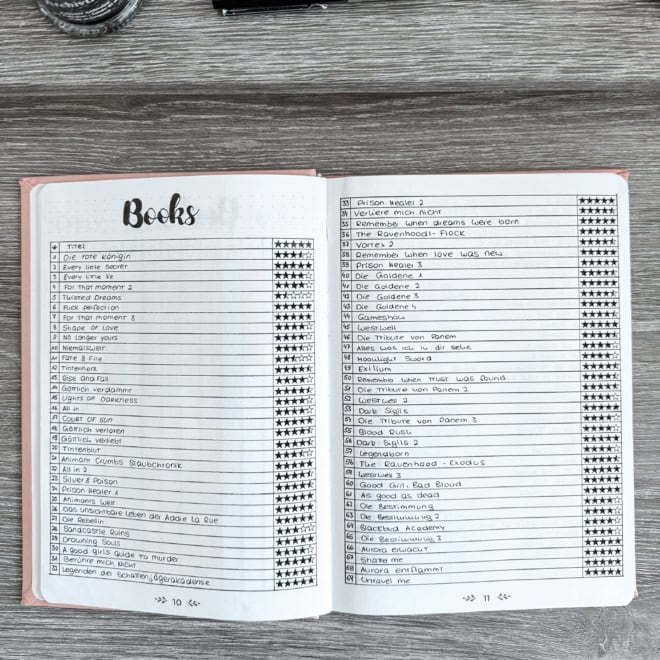 Books
# Titel
1 Die rote Königin
2 Every little Secret
3 Every little lie
4 For That moment 2
5 Twisted Dreams
6 Fuck perfection
7 For That moment 3
8 Shape of Love
9 No longer yours
10 Niemalswelt
11 Fate & Fire
12 Tintenherz
13 Rise and Fall
14 Göttlich verdammt
15 Lights of Darkness
16 All in
17 Court of sun
18 Göttlich verloren
19 Göttlich verliebt
20 Tintenblut
21 Animant Crumbs Staubchronik
22 All in 2
23 Silver & Poison
24 Prison Healer 1
25 Animants Welt
26 Das unsichtbare Leben der Addie La Rue
27 Die Rebellin
28 Sandcastle Ruins
29 Drowning Souls
30 A good girls Guide to murder
31 Berühre mich. Nicht
32 Legenden der Schattenjägerakademie
10
33 Prison Healer 2
34 Verliere mich. nicht
35 Remember when dreams were born
36 The Ravenhood - Flock
37 Vortex 2
38 Remember when love was new
39 Prison Healer 3
40 Die Goldene 1
41 Die Goldene 2
42 Die Goldene 3
43 Die Goldene 4
44 Gameshow
45 Westwell
46 Die Tribute von Panem
47 Alles was ich in dir sehe
48 Moonlight Sword
49 Exilium
50 Remember when trust was found
51 Die Tribute von Panem 2
52 Westwell 2
53 Dark Sigils
54 Die Tribute von Panem 3
55 Blood Rush
56 Dark Sigils 2
57 Legendborn
58 The Ravenhood - Exodus
59 Westwell 3
60 Good Girl, Bad Blood
61 As good as dead
62 Die Bestimmung
63 Die Bestimmung 2
64 Blackbird Academy
65 Die Bestimmung 3
66 Aurora erwacht
67 Shatter me
68 Aurora entflammt
69 Unravel me
11